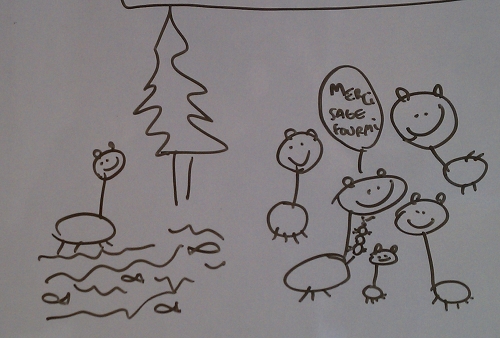 MERCI
SAGE
FOURMI